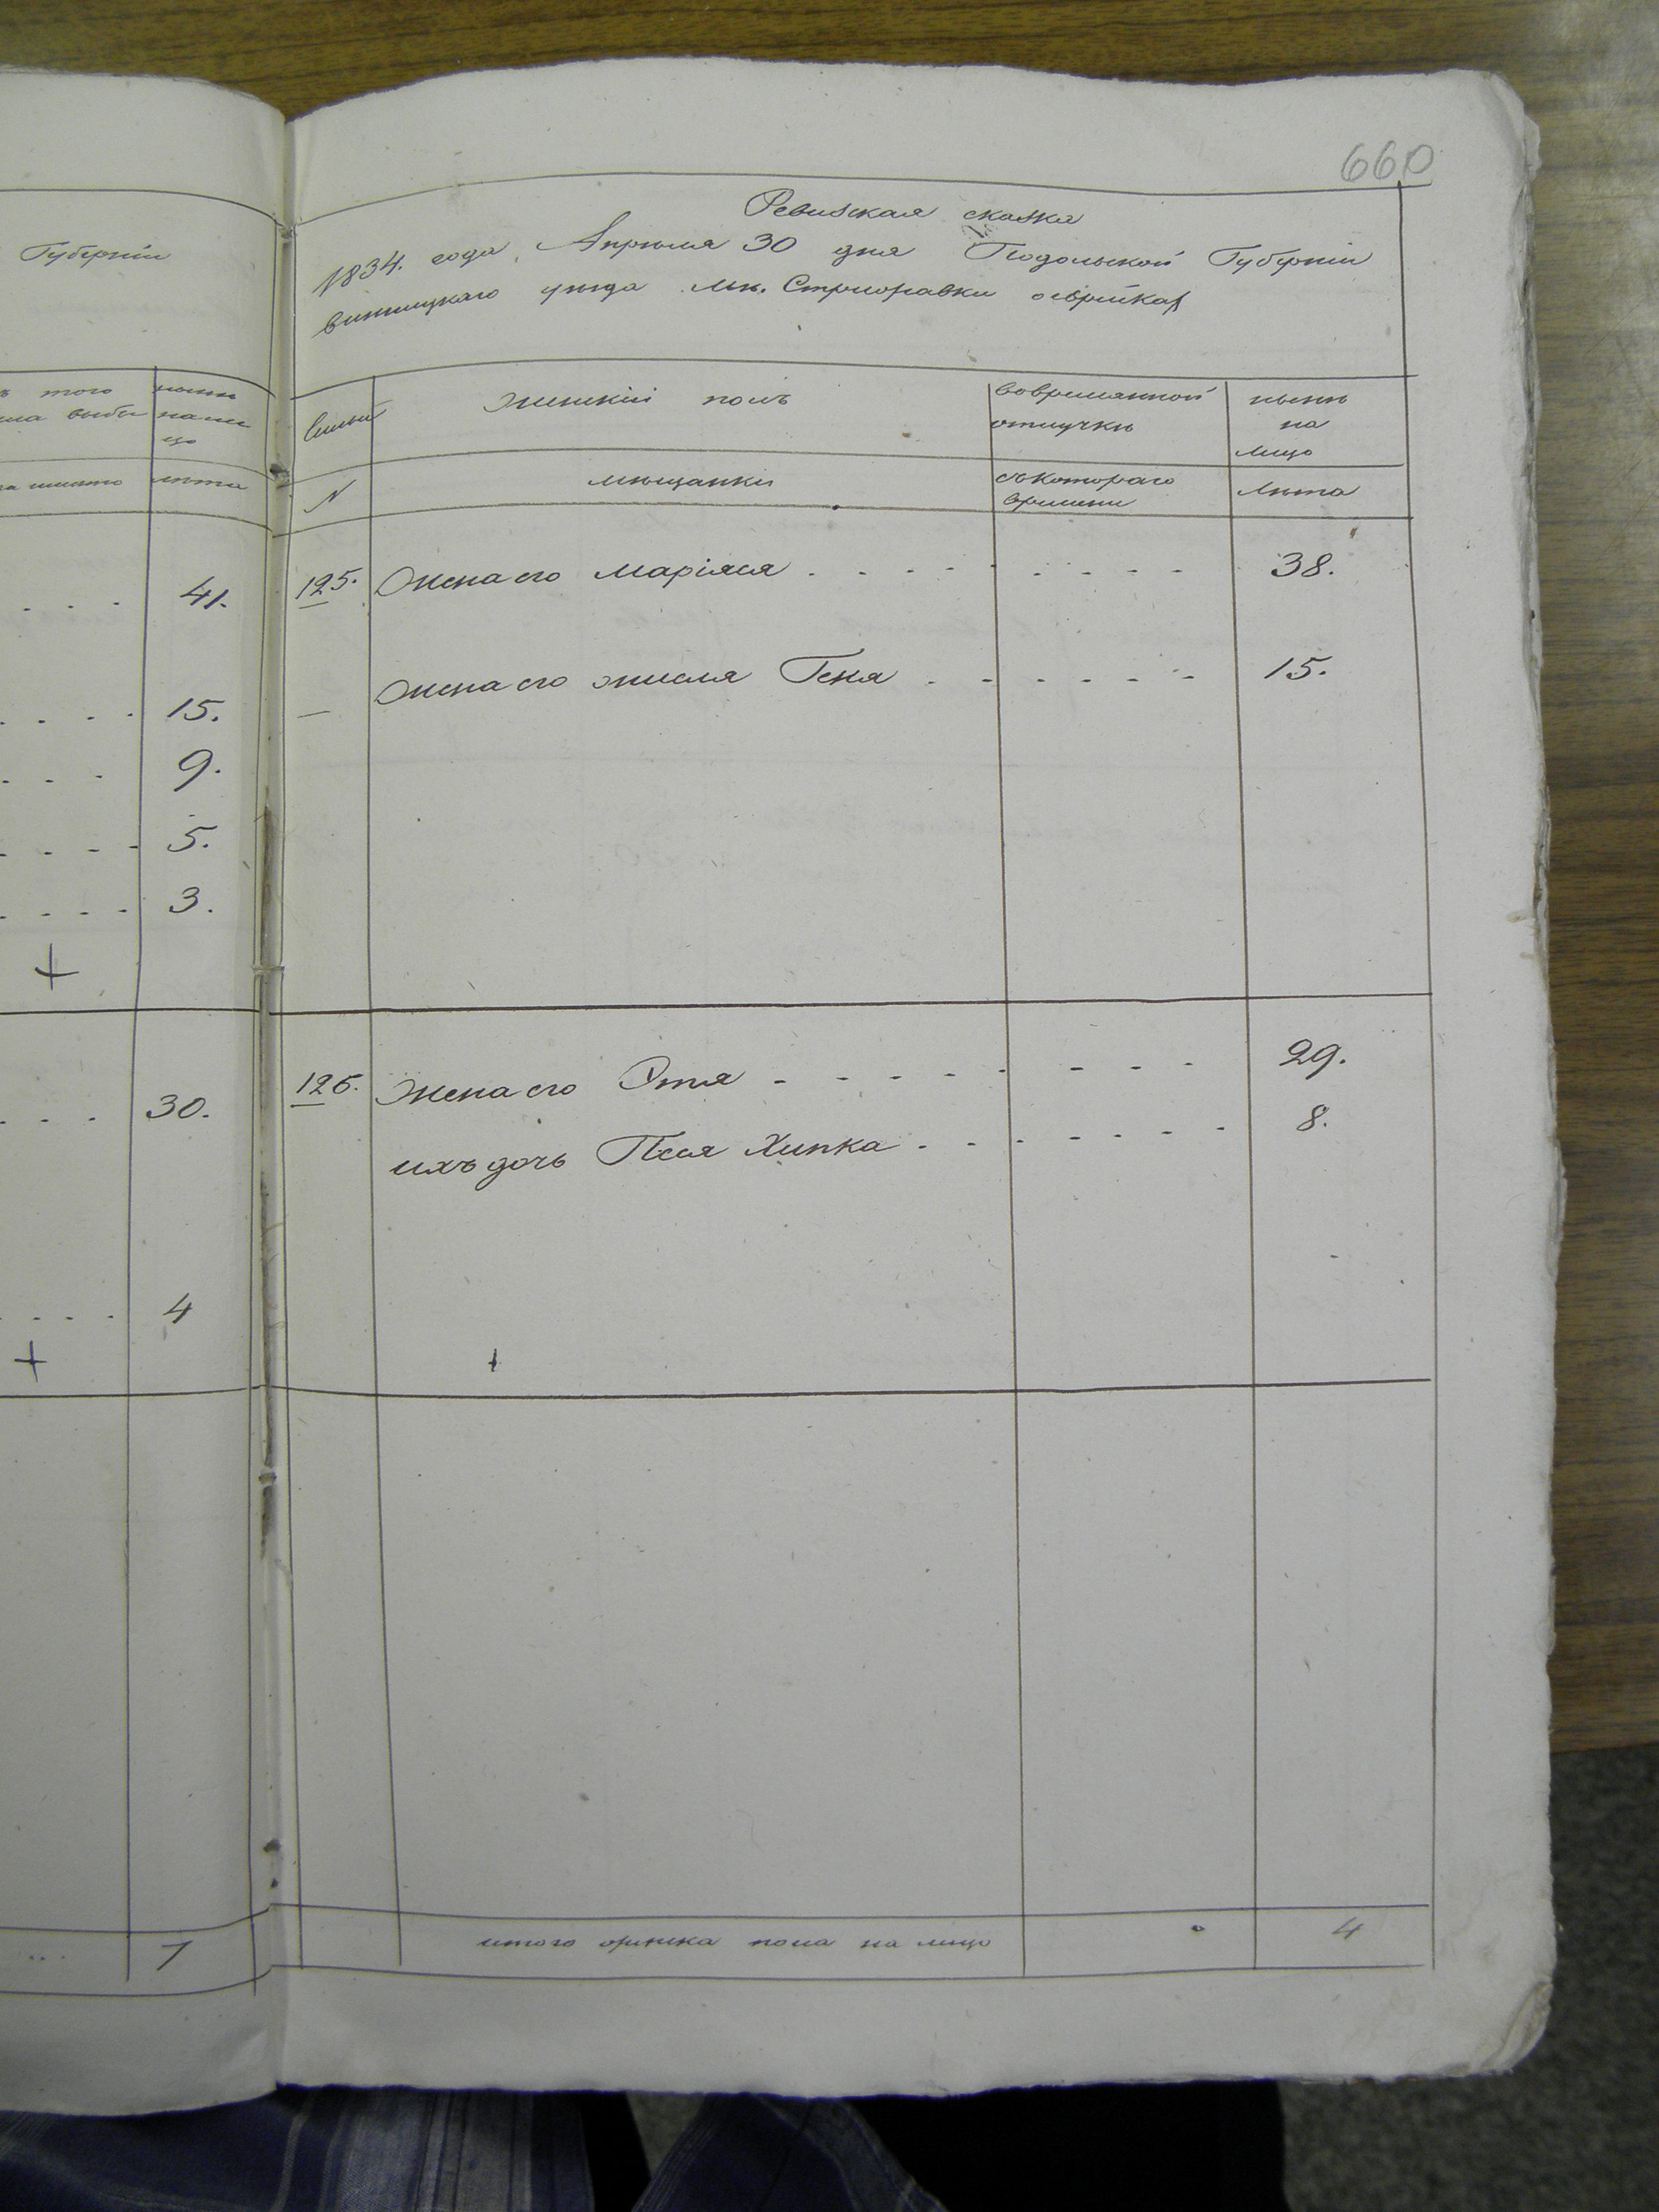 Губернiи
ъ того
выбы
нынѣ
на ли
цо
лѣта
41.
15.
9.
5.
3.
+
30.
4
+
7
660
Ревизская сказка
1834. года Апрѣля 30 дня Подольской Губернiи
винницкаго уѣзда мѣ. Стрижавки о еврейках
Семьи
женскiй полъ
вовремянной
отлучкѣ
нынѣ
на
лицо
N
мѣщанки
съкотораго
времени
лѣта
125. Жена его Марiяся . . . . . . . . 38.
— Жена его Гения . . . . . . 15.
126. Жена его Этя - - - - - - - - 29.
ихъ дочь Песя Хипка - - - - - - - 8.
+
итого женска пола на лицо 4